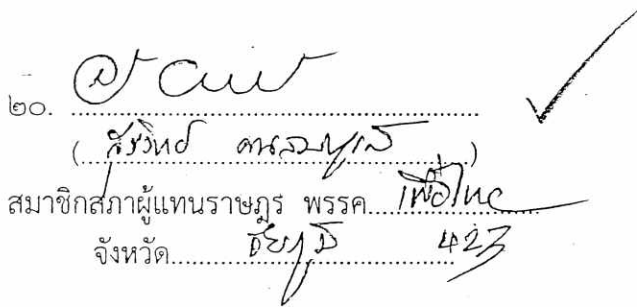 ๒๐.
(ศิวิทย์ คนสมบูรณ์)
สมาชิกสภาผู้แทนราษฎร พรรค เพื่อไทย
จังหวัด ชัยภูมิ 423